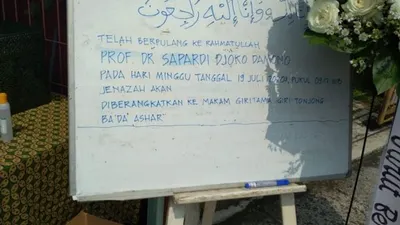 وَإِنَّا إِلَيْهِ رَاجِعُونَ
TELAH BERPULANG KE RAHMATULLAH
PROF DR SAPARDI DJOKO DAMONO
PADA HARI MINGGU TANGGAL 19 JULI PUKUL WIB
JENAZAH AKAN
DIBERANGKATKAN KE MAKAM GIRITAMA GIRI TONJONG
BA'DA' ASHAR
Turut